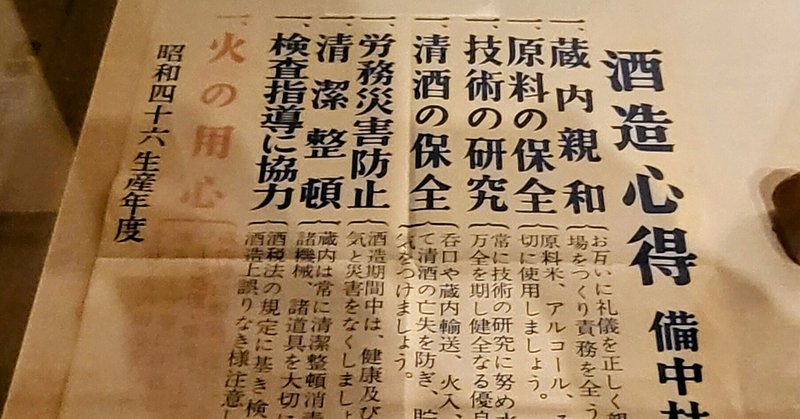 酒造心得 備中
一、蔵内親和
お互いに礼儀を正しく親
場をつくり責務を全う
一、原料の保全
原料米、アルコール、
切に使用しましょう。
一、技術の研究
常に技術の研究に努め
万全を期し健全なる優良
一、清酒の保全
呑口や蔵内輸送、火入、
て清酒の亡失を防ぎ、貯
気をつけましょう。
一、労務災害防止
酒造期間中は、健康及び
気と災害をなくしましょ
一、清潔整頓
蔵内は常に清潔整頓消毒
諸機械、諸道具を大切に
一、検査指導に協力
酒税法の規定に基き検
酒造上誤りなき様注意し
一、火の用心
昭和四十六生産年度